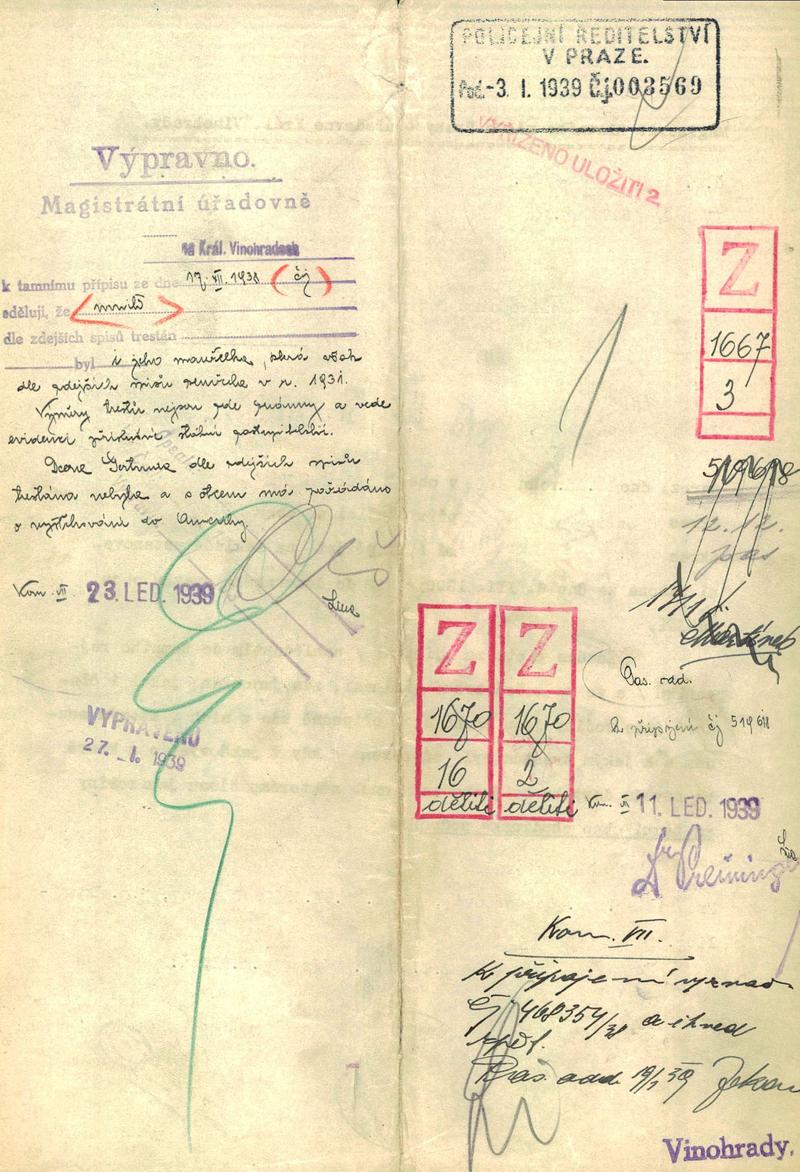 Výpravno.
Magistrátní úřadovně
na Král. Vinohradech
k tamnímu přípisu ze dne 17. VII. 1938 (čj)
sděluji, že
dle zdejších spisů trestán
byl i jeho manželka, která však
dle zdejších spisů zemřela v r. 1931.
Výměry trestů nejsou zde známy a vede
evidenci příslušné státní zastupitelství.
Dcera Gertruda dle zdejších spisů
trestána nebyla a s otcem má požádáno
o vystěhování do Ameriky.
Kom. VII 23. LED. 1939
VYPRAVENO
27. -I. 1939
POLICEJNÍ ŘEDITELSTVÍ
V PRAZE.
Pod. -3. I. 1939 Čj. 003569
VYŘÍZENO ULOŽITI 2
Z
1667
3
12. 12.
Z Z
1670 1670
16 2
děliti děliti
Pas. odd.
k připojení čj 519 618
Kom. VII 11. LED. 1939
Kom. VII.
K připojení
čj 468354/38 a ihned
zpět.
Pas. odd. 19/1 39
Vinohrady.